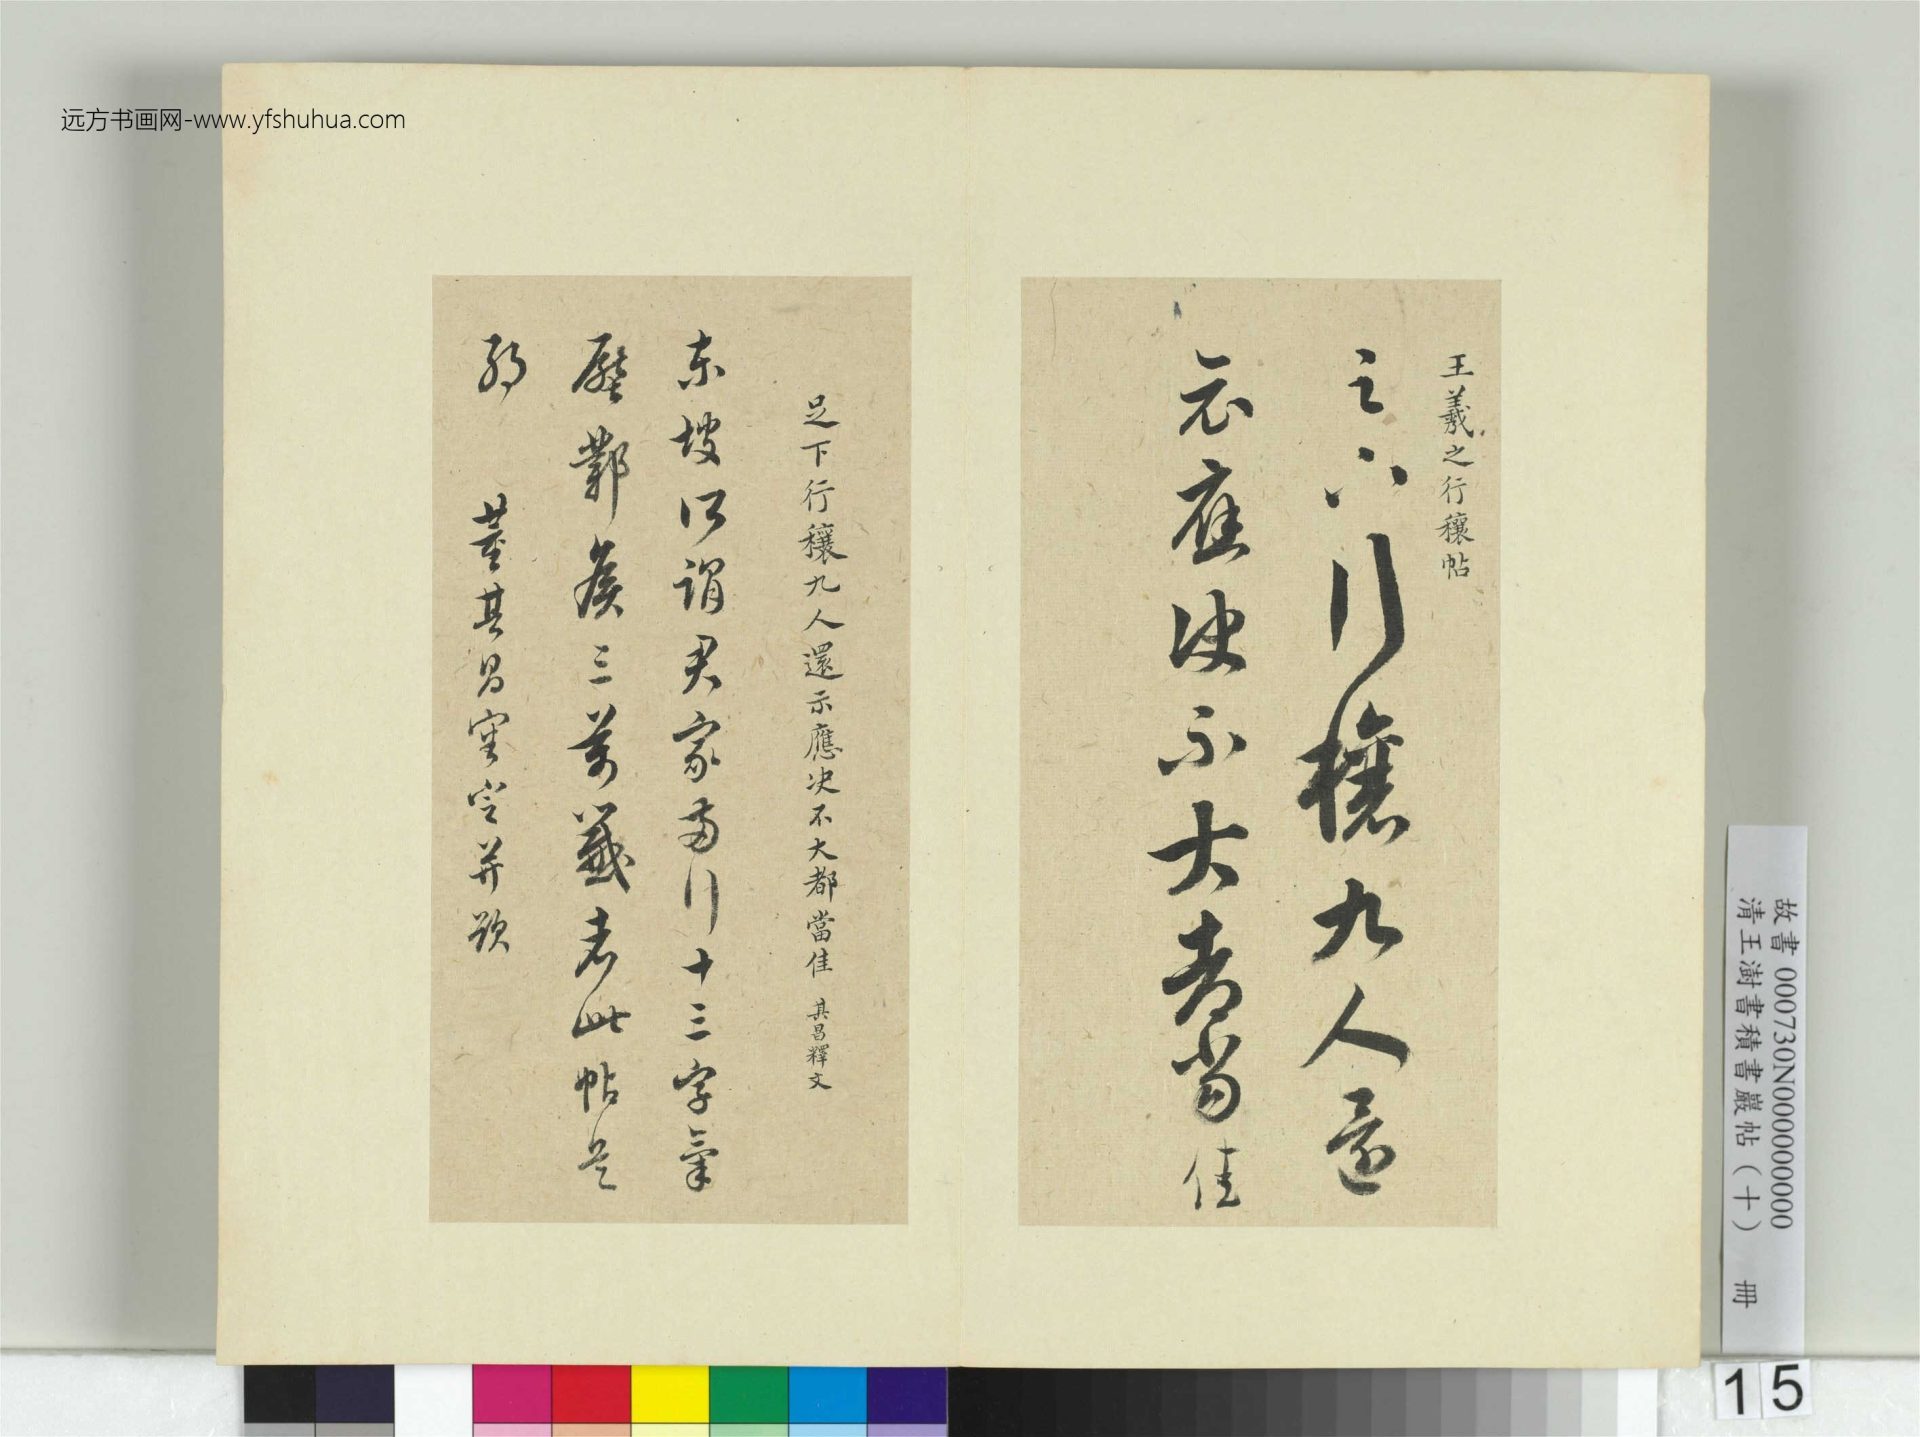 远方书画网-www.yfshuhua.com
王羲之行穰帖
足下行穰九人還
示應決不大都當佳
足下行穰九人還示應決不大都當佳 其昌釋文
東坡所謂君家兩行十三字氣
壓鄴侯三萬籤者此帖是
耶
董其昌審定并題
故書000730N000000000
清王澍書積書巖帖(十) 冊
15